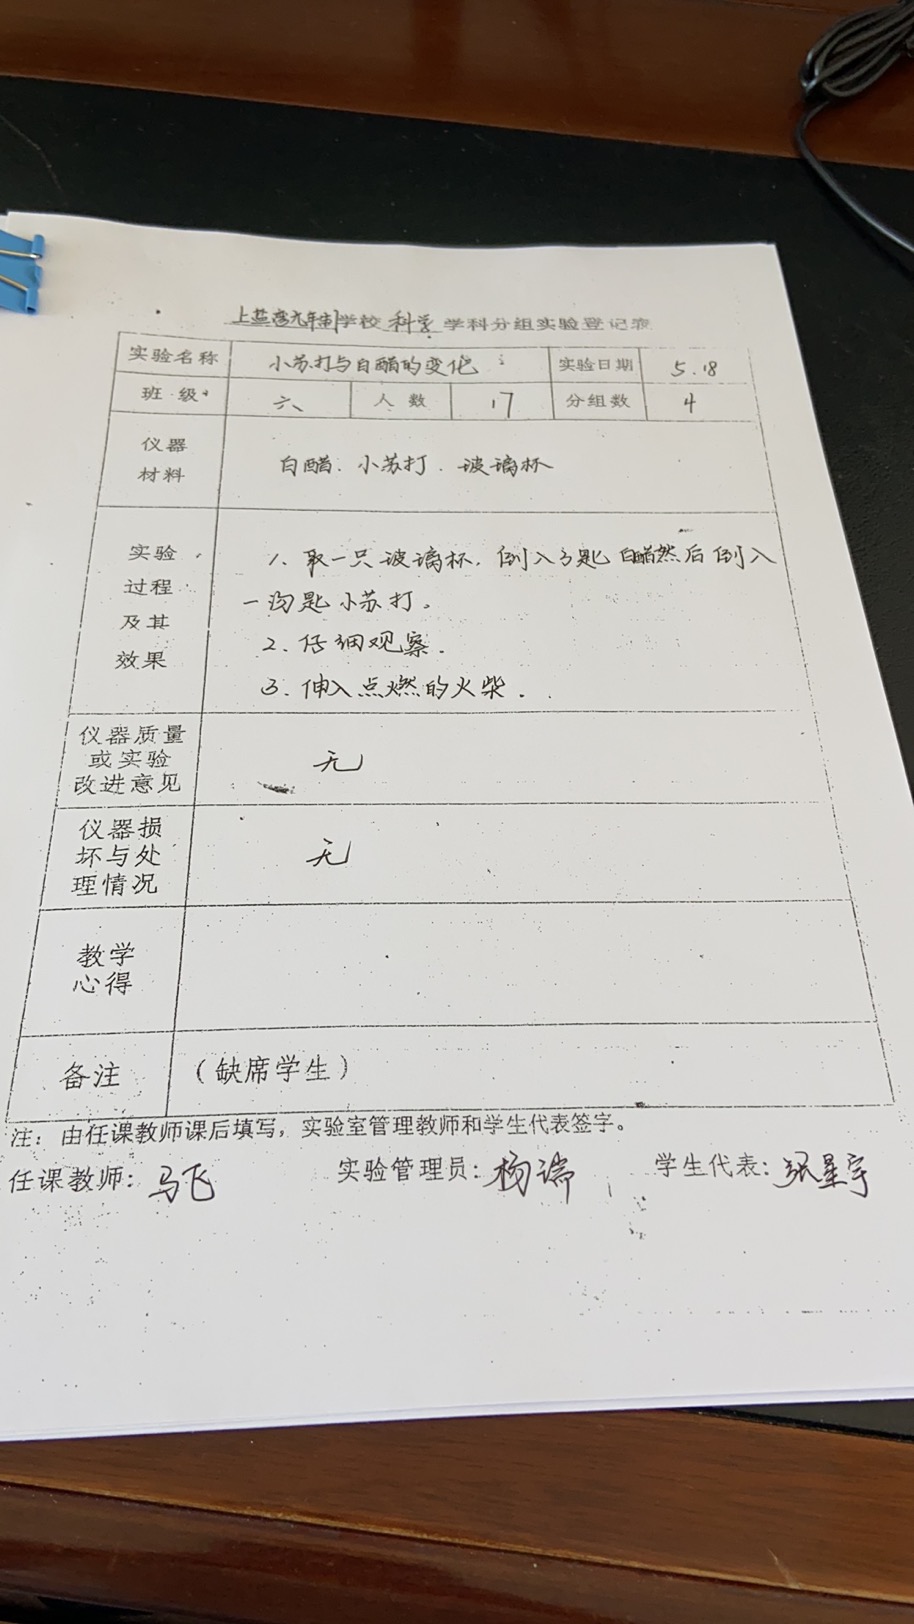 上盐湾九年制学校 科学 学科分组实验登记表
实验名称 小苏打与白醋的变化 实验日期 5.18
班级 六 人数 17 分组数 4
仪器
材料
白醋. 小苏打. 玻璃杯
实验
过程
及其
效果
1. 取一只玻璃杯, 倒入3匙白醋然后倒入
一沟匙小苏打。
2. 仔细观察.
3. 伸入点燃的火柴.
仪器质量
或实验
改进意见
无
仪器损
坏与处
理情况
无
教学
心得
备注 (缺席学生)
注: 由任课教师课后填写, 实验室管理教师和学生代表签字。
任课教师: 马飞 实验管理员: 杨瑞 学生代表: 张星宇